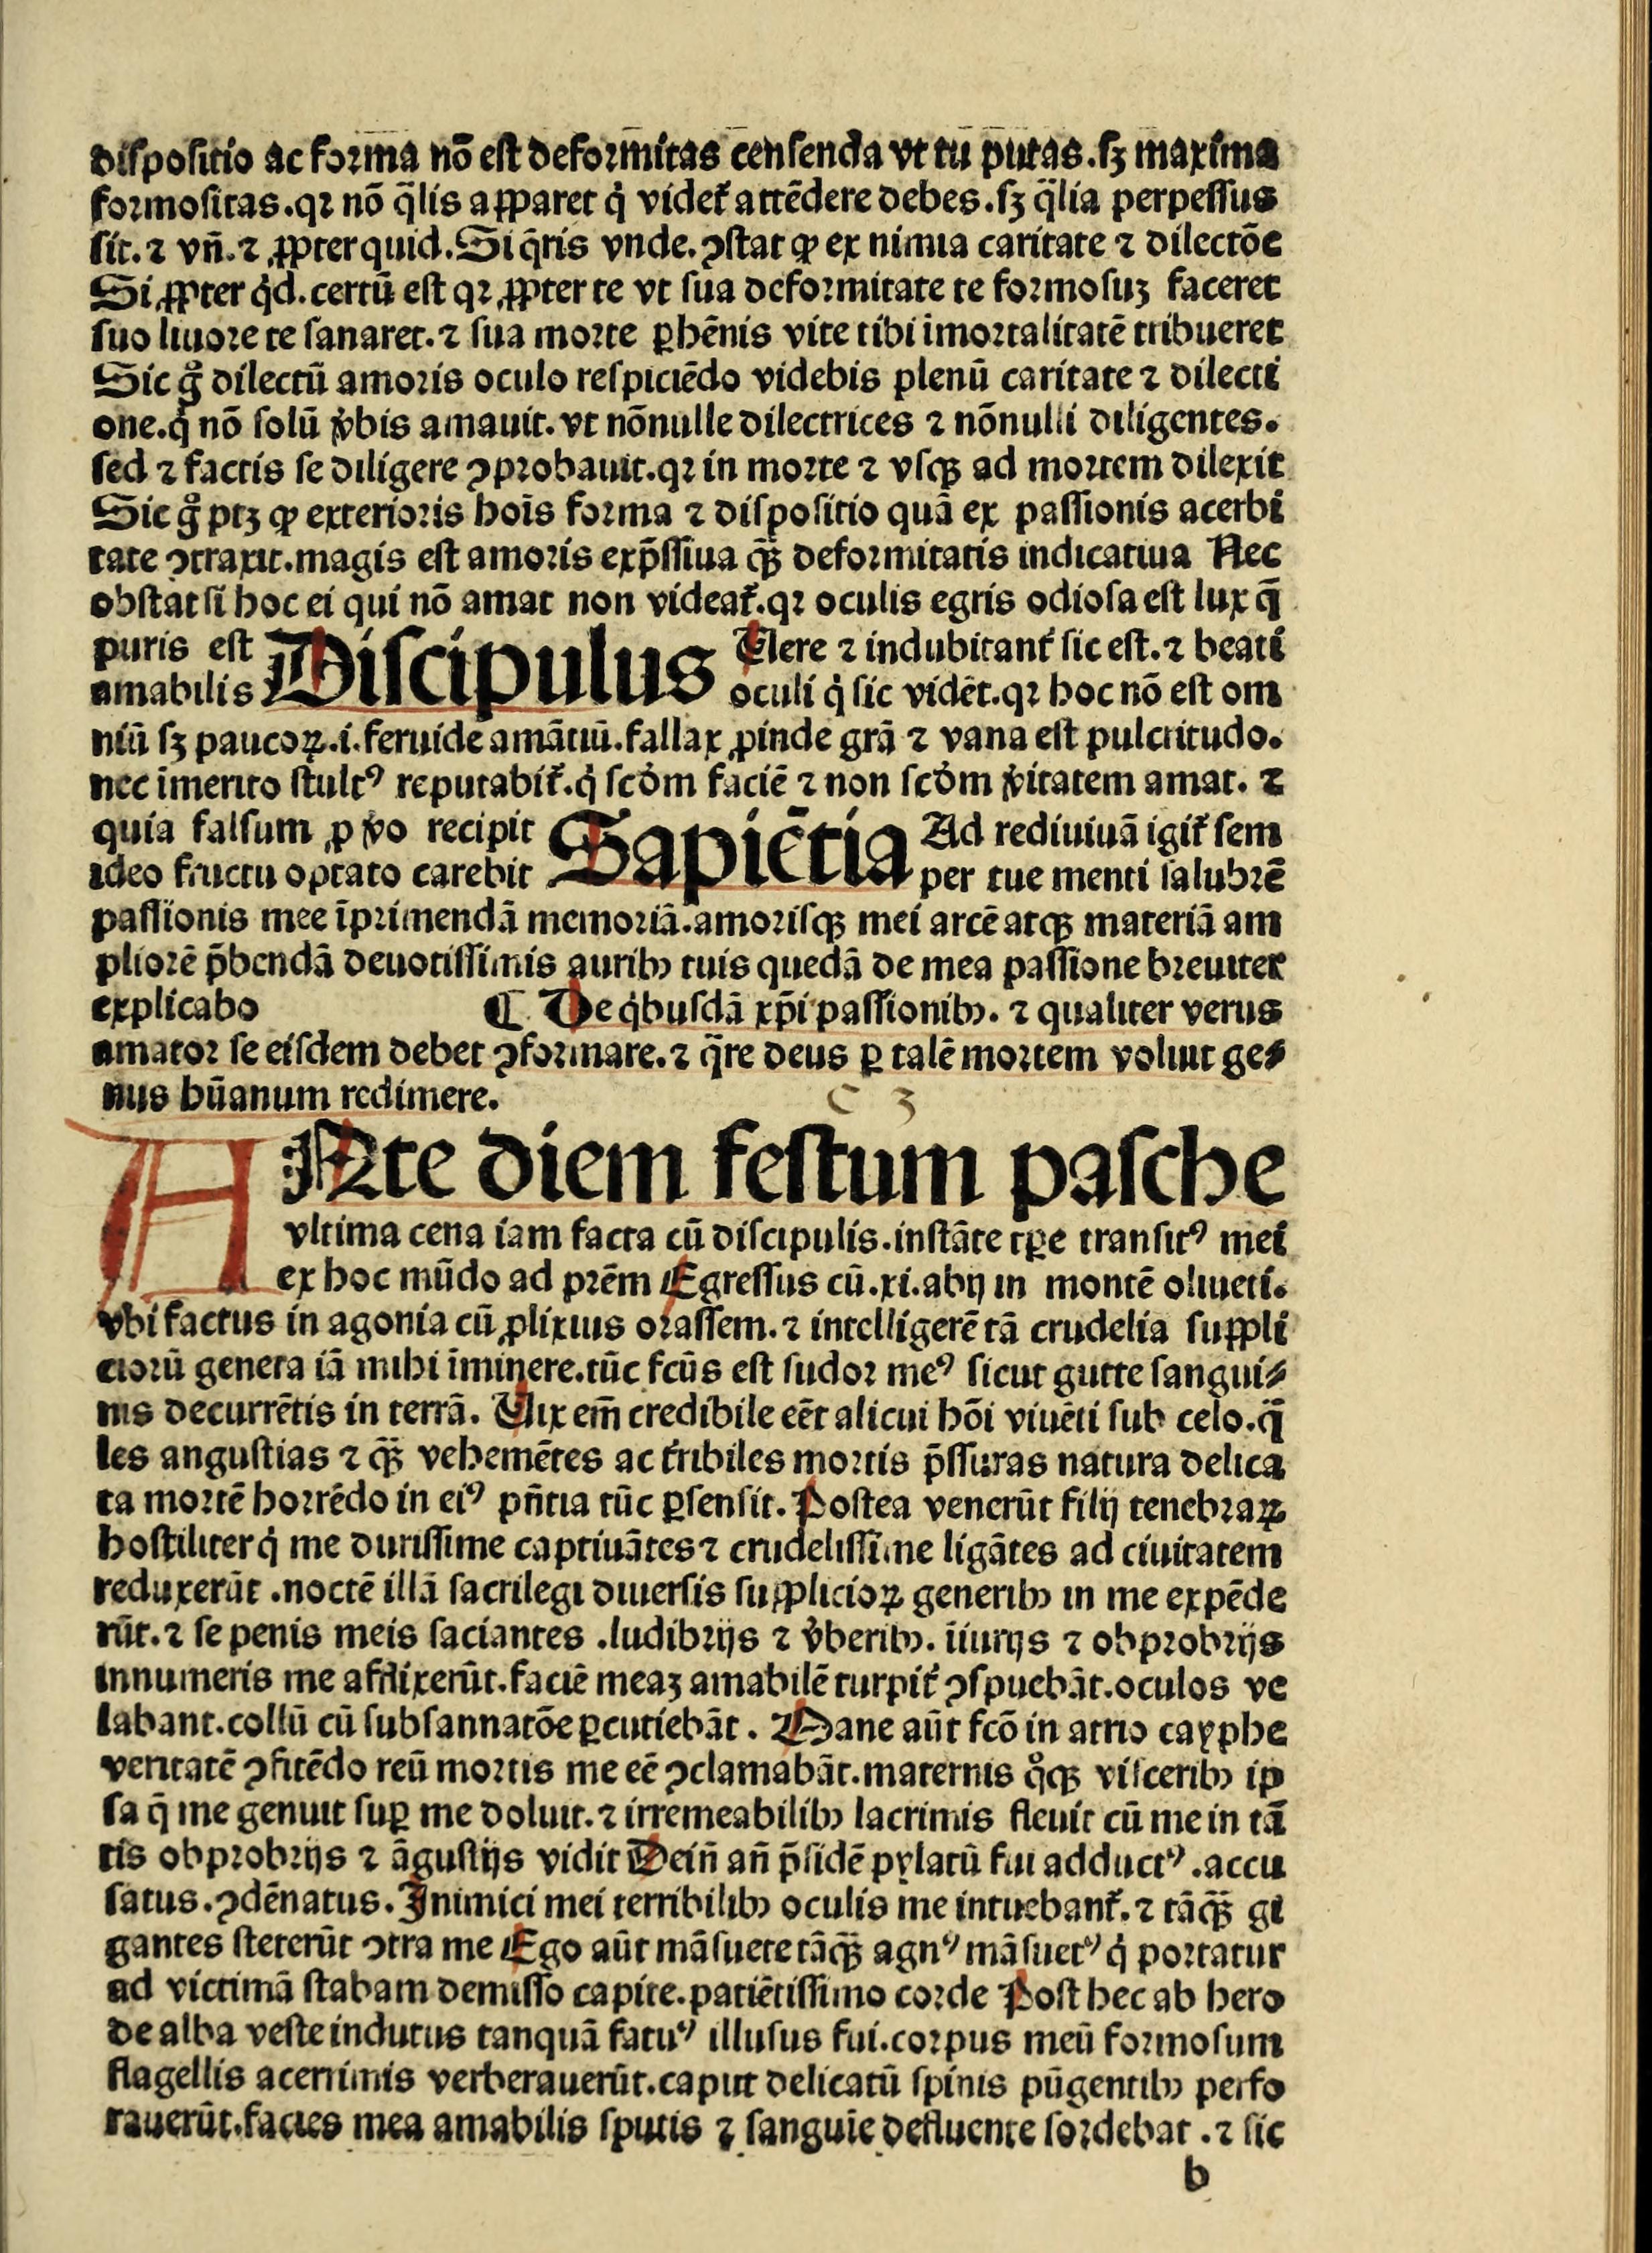 diſpoſitio ac forma nō eſt deformitas cenſenda vt tu putas.ſꝫ maxima
formoſitas.qꝛ nō q̄lis apparet q̇ videt᷑ attēdere debes.ſꝫ q̄lia perpeſſus
ſit.⁊ vn̄.⁊ ꝓpter quid.Si q̄ris vnde.ꝯſtat ꝙ ex nimia caritate ⁊ dilectōe
Si ꝓpter q̇d.certū eſt qꝛ ꝓpter te vt ſua deformitate te formoſuꝫ faceret
ſuo liuore te ſanaret.⁊ ſua morte ꝑhēnis vite tibi īmortalitatē tribueret
Sic gͦ dilectū amoris oculo reſpiciēdo videbis plenū caritate ⁊ dilecti
one.q̇ nō ſolū v̇bis amauit.vt nōnulle dilectrices ⁊ nōnulli diligentes.
ſed ⁊ factis ſe diligere ꝯprobauit.qꝛ in morte ⁊ vſqꝫ ad mortem dilexit
Sic gͦ ptꝫ ꝙ exterioris hoīs forma ⁊ diſpoſitio quā ex paſſionis acerbi
tate ꝯtraxit.magis eſt amoris exp̄ſſiua qꝫ̄ deformitatis indicatiua Nec
obſtat ſi hoc ei qui nō amat non videat᷑.qꝛ oculis egris odioſa eſt lux q̄
puris est Diſcipulus Uere ⁊ indubitant᷑ ſic eſt.⁊ beati
amabilis oculi q̇ ſic vidēt.qꝛ hoc nō eſt om
niū ſꝫ paucoꝝ.i.feruide amātiū.fallax ꝓinde grā ⁊ vana eſt pulcritudo.
nec īmerito ſtultꝰ reputabit᷑.q̇ ſcḋm faciē ⁊ non ſcḋm v̇itatem amat. ⁊
quia falſum ꝓ v̇o recipit Sapiētia Ad rediuiuā igit᷑ ſem
ideo fructu optato carebit per tue menti ſalubrē
paſſionis mee īprimendā memoriā.amoriſqꝫ mei arcē atqꝫ materiā am
pliorē p̄bendā deuotiſſimis auribꝰ tuis quedā de mea paſſione breuiter
explicabo ¶ De q̇buſdā xp̄i paſſionibꝰ. ⁊ qualiter verus
amator ſe eiſdem debet ꝯformare.⁊ q̄re deus ꝑ talē mortem voluit ge⸗
nus hūanum redimere.
c 3
A Nte diem feſtum paſche
vltima cena iam facta cū diſcipulis.inſtāte tꝑe tranſitꝰ mei
ex hoc mūdo ad prēm Egreſſus cū.xi.abij in montē oliueti.
vbi factus in agonia cū ꝓlixius oraſſem.⁊ intelligerē tā crudelia ſuppli
ciorū genera iā mihi īminere.tūc fcūs eſt ſudor meꝰ ſicut gutte ſangui⸗
nis decurrētis in terrā. Uix em̄ credibile eēt alicui hōi viuēti ſub celo.q̄
les anguſtias ⁊ qꝫ̄ vehemētes ac t᷑ribiles mortis p̄ſſuras natura delica
ta mortē horrēdo in eiꝰ pn̄tia tūc ꝑſenſit. Poſtea venerūt filij tenebraꝝ
hoſtiliter q̇ me duriſſime captiuātes ⁊ crudeliſſime ligātes ad ciuitatem
reduxerūt .noctē illā ſacrilegi diuerſis ſupplicioꝝ generibꝰ in me expēde
rūt.⁊ ſe penis meis ſaciantes .ludibrijs ⁊ v̇beribꝰ. īiurijs ⁊ obprobrijs
innumeris me afflixerūt.faciē meaꝫ amabilē turpit᷑ ꝯſpuebāt.oculos ve
labant.collū cū ſubſannatōe ꝑcutiebāt . Mane aūt fcō in atrio cayphe
veritatē ꝯfitēdo reū mortis me eē ꝯclamabāt.maternis qͦqꝫ viſceribꝰ ip
ſa q̄ me genuit ſuꝑ me doluit.⁊ irremeabilibꝰ lacrimis fleuit cū me in tā
tis obprobrijs ⁊ āguſtijs vidit Dein̄ an̄ p̄ſidē pylatū fui adductꝰ .accu
ſatus.ꝯdēnatus.Inimici mei terribilibꝰ oculis me intuebant᷑.⁊ tāqꝫ̄ gi
gantes ſteterūt ꝯtra me Ego aūt māſuete tāqꝫ̄ agnꝰ māſuetꝰ q̇ portatur
ad victimā ſtabam demiſſo capite.patiētiſſimo corde Poſt hec ab hero
de alba veſte indutus tanquā fatuꝰ illuſus fui.corpus meū formoſum
flagellis acerrimis verberauerūt.caput delicatū ſpinis pūgentibꝰ perfo
rauerūt.facies mea amabilis ſputis ⁊ ſanguīe defluente ſordebat .⁊ ſic
b